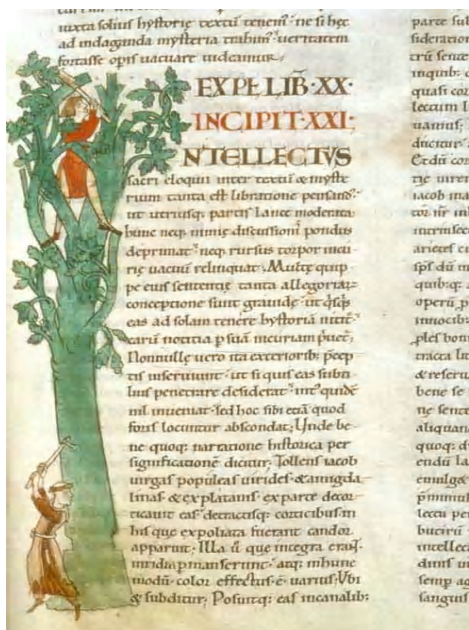 iuxta solius hystorie textū tenem᷒ ne si hęc
ad indaganda mysteria trahim᷒ ueritatem
fortasse opis uacuare uideamur
EXPL LIB̄·XX·
INCIPIT·XXI·
NTELLECTVS
sacri eloquii inter textū & myste
rium tanta est libratione pensand᷒
ut utriusq; partis lance moderata
hunc neq; nimię discussionis pondus
deprimat neq; rursus torpor incu
rię uacuū relinquat. Multę quip
pe eius sententię tanta allegoriarū
conceptione sunt grauidę ut q̄sq̄s
eas ad solam tenere hystoriā nitit᷒
earū notitia p suā incuriam p̄uet᷒
Nonnullę uero ita exteriorib; p̄cep
tis inseruiunt ut si quis eas subti
lius penetrare desiderat int᷒ quidē
nil inueniat sed hoc sibi etiā quod
foris locuntur abscondat; Unde be
ne quoq; narratione historica per
significationē dicitur, Tollens iacob
uirgas populeas uirides & amigda
linas & ex platanis ex parte decor
ticauit eas detractisq; corticibus in
his que expoliata fuerant candor
apparuit; Illa ū que integra erant
uiridia pmanserunt atq; inhunc
modū color effectus·ē·uarius; Ubi
& subditur; Posuitq; eas incanalib:
parte sui
sideration
trū sente
inquib:
quasi cor
lectum l
uamus;
ducitur
Et dū cor
tię uiren
iacob ma
intrinsec
arietes e
spš dū m
quib:q:
operū p
innocib:
ples bon
tracta lit
& reseru
bene se
ne senc
aliquan
quoq: d
endū la
emulg&
lectu per
butirū
intellec
diuis in
semp ag
sanguis